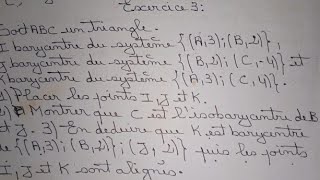 Exercice 3:
Soit ABC un triangle.
I barycentre du système {(A,3);(B,2)},
J barycentre du système {(B,2);(C,-4)} et
K barycentre du système {(A,3);(C,-4)}.
1) Placer les points I, J et K.
2) Montrer que C est l'isobarycentre de B
et J. 3)-En déduire que K est barycentre
de {(A,3);(B,2);(J,2)} puis les points
I, J et K sont alignés.